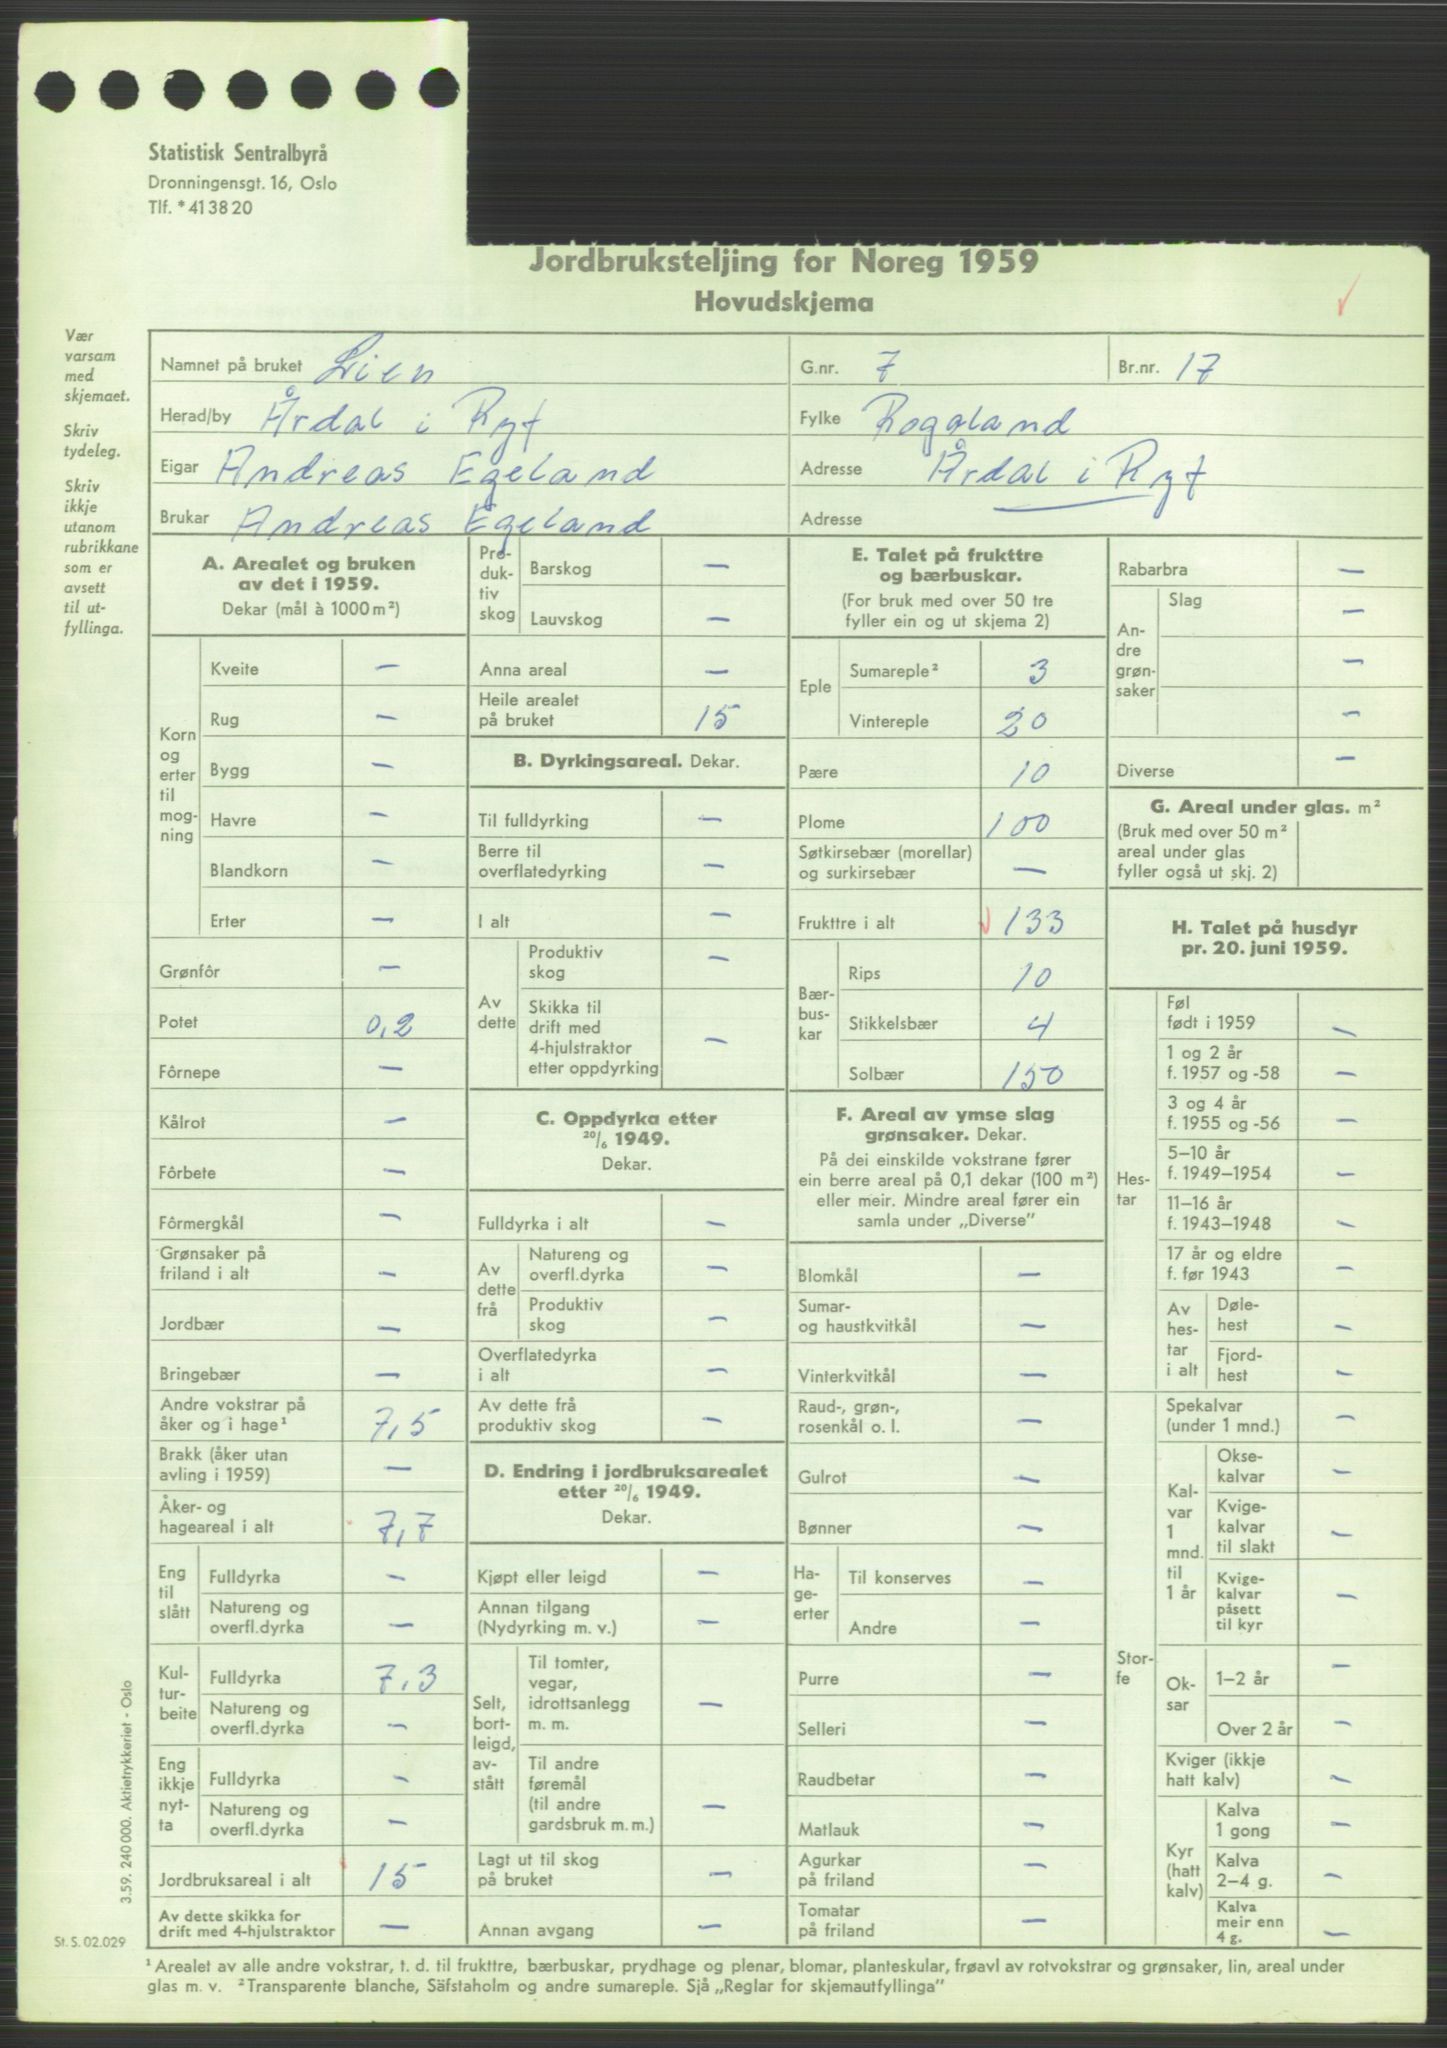 Statistisk Sentralbyrå
Dronningensgt. 16, Oslo
Tlf. *41 38 20
Jordbruksteljing for Noreg 1959
Hovudskjema
Vær
varsam
med
skjemaet.
Skriv
tydeleg.
Skriv
ikkje
utanom
rubrikkane
som er
avsett
til ut-
fyllinga.
Namnet på bruket Lien
G.nr. 7
Br.nr. 17
Herad/by Årdal i Ryf
Fylke Rogaland
Eigar Andreas Egeland
Adresse Årdal i Ryf
Brukar Andreas Egeland
Adresse
A. Arealet og bruken
av det i 1959.
Dekar (mål à 1000 m²)
Korn
og
erter
til
mog-
ning
Kveite –
Rug –
Bygg –
Havre –
Blandkorn –
Erter –
Grønfôr –
Potet 0,2
Fôrnepe –
Kålrot –
Fôrbete –
Fôrmergkål –
Grønsaker på
friland i alt –
Jordbær –
Bringebær –
Andre vokstrar på
åker og i hage¹ 7,5
Brakk (åker utan
avling i 1959) –
Åker- og
hageareal i alt 7,7
Eng
til
slått
Fulldyrka –
Natureng og
overfl.dyrka –
Kul-
tur-
beite
Fulldyrka 7,3
Natureng og
overfl.dyrka –
Eng
ikkje
nyt-
ta
Fulldyrka –
Natureng og
overfl.dyrka –
Jordbruksareal i alt 15
Av dette skikka for
drift med 4-hjulstraktor –
Pro-
duk-
tiv
skog
Barskog –
Lauvskog –
Anna areal –
Heile arealet
på bruket 15
B. Dyrkingsareal. Dekar.
Til fulldyrking –
Berre til
overflatedyrking –
I alt –
Av
dette
Produktiv
skog –
Skikka til
drift med
4-hjulstraktor
etter oppdyrking –
C. Oppdyrka etter
20/6 1949.
Dekar.
Fulldyrka i alt –
Av
dette
frå
Natureng og
overfl.dyrka –
Produktiv
skog –
Overflatedyrka
i alt –
Av dette frå
produktiv skog –
D. Endring i jordbruksarealet
etter 20/6 1949.
Dekar.
Kjøpt eller leigd –
Annan tilgang
(Nydyrking m. v.) –
Selt,
bort-
leigd,
av-
stått
Til tomter,
vegar,
idrottsanlegg
m. m. –
Til andre
føremål
(til andre
gardsbruk m. m.) –
Lagt ut til skog
på bruket –
Annan avgang –
E. Talet på frukttre
og bærbuskar.
(For bruk med over 50 tre
fyller ein og ut skjema 2)
Eple
Sumareple² 3
Vintereple 20
Pære 10
Plome 100
Søtkirsebær (morellar)
og surkirsebær –
Frukttre i alt 133
Bær-
bus-
kar
Rips 10
Stikkelsbær 4
Solbær 150
F. Areal av ymse slag
grønsaker. Dekar.
På dei einskilde vokstrane fører
ein berre areal på 0,1 dekar (100 m²)
eller meir. Mindre areal fører ein
samla under „Diverse”
Blomkål –
Sumar-
og haustkvitkål –
Vinterkvitkål –
Raud-, grøn-,
rosenkål o. l. –
Gulrot –
Bønner –
Ha-
ge-
erter
Til konserves –
Andre –
Purre –
Selleri –
Raudbetar –
Matlauk –
Agurkar
på friland –
Tomatar
på friland –
Rabarbra –
An-
dre
grøn-
saker
Slag –
–
–
Diverse –
G. Areal under glas. m²
(Bruk med over 50 m²
areal under glas
fyller også ut skj. 2)
H. Talet på husdyr
pr. 20. juni 1959.
Hes-
tar
Føl
født i 1959 –
1 og 2 år
f. 1957 og -58 –
3 og 4 år
f. 1955 og -56 –
5–10 år
f. 1949–1954 –
11–16 år
f. 1943–1948 –
17 år og eldre
f. før 1943 –
Av
hes-
tar
i alt
Døle-
hest –
Fjord-
hest –
Stor-
fe
Spekalvar
(under 1 mnd.) –
Kal-
var
1
mnd.
til
1 år
Okse-
kalvar –
Kvige-
kalvar
til slakt –
Kvige-
kalvar
påsett
til kyr –
Ok-
sar
1–2 år –
Over 2 år –
Kviger (ikkje
hatt kalv) –
Kyr
(hatt
kalv)
Kalva
1 gong –
Kalva
2–4 g. –
Kalva
meir enn
4 g. –
3.59. 240 000. Aktietrykkeriet - Oslo
St. S. 02.029
¹ Arealet av alle andre vokstrar, t. d. til frukttre, bærbuskar, prydhage og plenar, blomar, planteskular, frøavl av rotvokstrar og grønsaker, lin, areal under
glas m. v. ² Transparente blanche, Säfstaholm og andre sumareple. Sjå „Reglar for skjemautfyllinga”